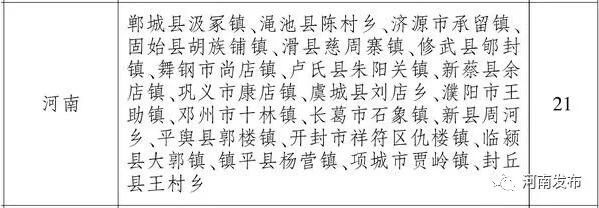 郸城县汲冢镇、渑池县陈村乡、济源市承留镇、
固始县胡族铺镇、滑县慈周寨镇、修武县郇封
镇、舞钢市尚店镇、卢氏县朱阳关镇、新蔡县余
店镇、巩义市康店镇、虞城县刘店乡、濮阳市王
助镇、邓州市十林镇、长葛市石象镇、新县周河
乡、平舆县郭楼镇、开封市祥符区仇楼镇、临颍
县大郭镇、镇平县杨营镇、项城市贾岭镇、封丘
县王村乡
河南
21
河南发布